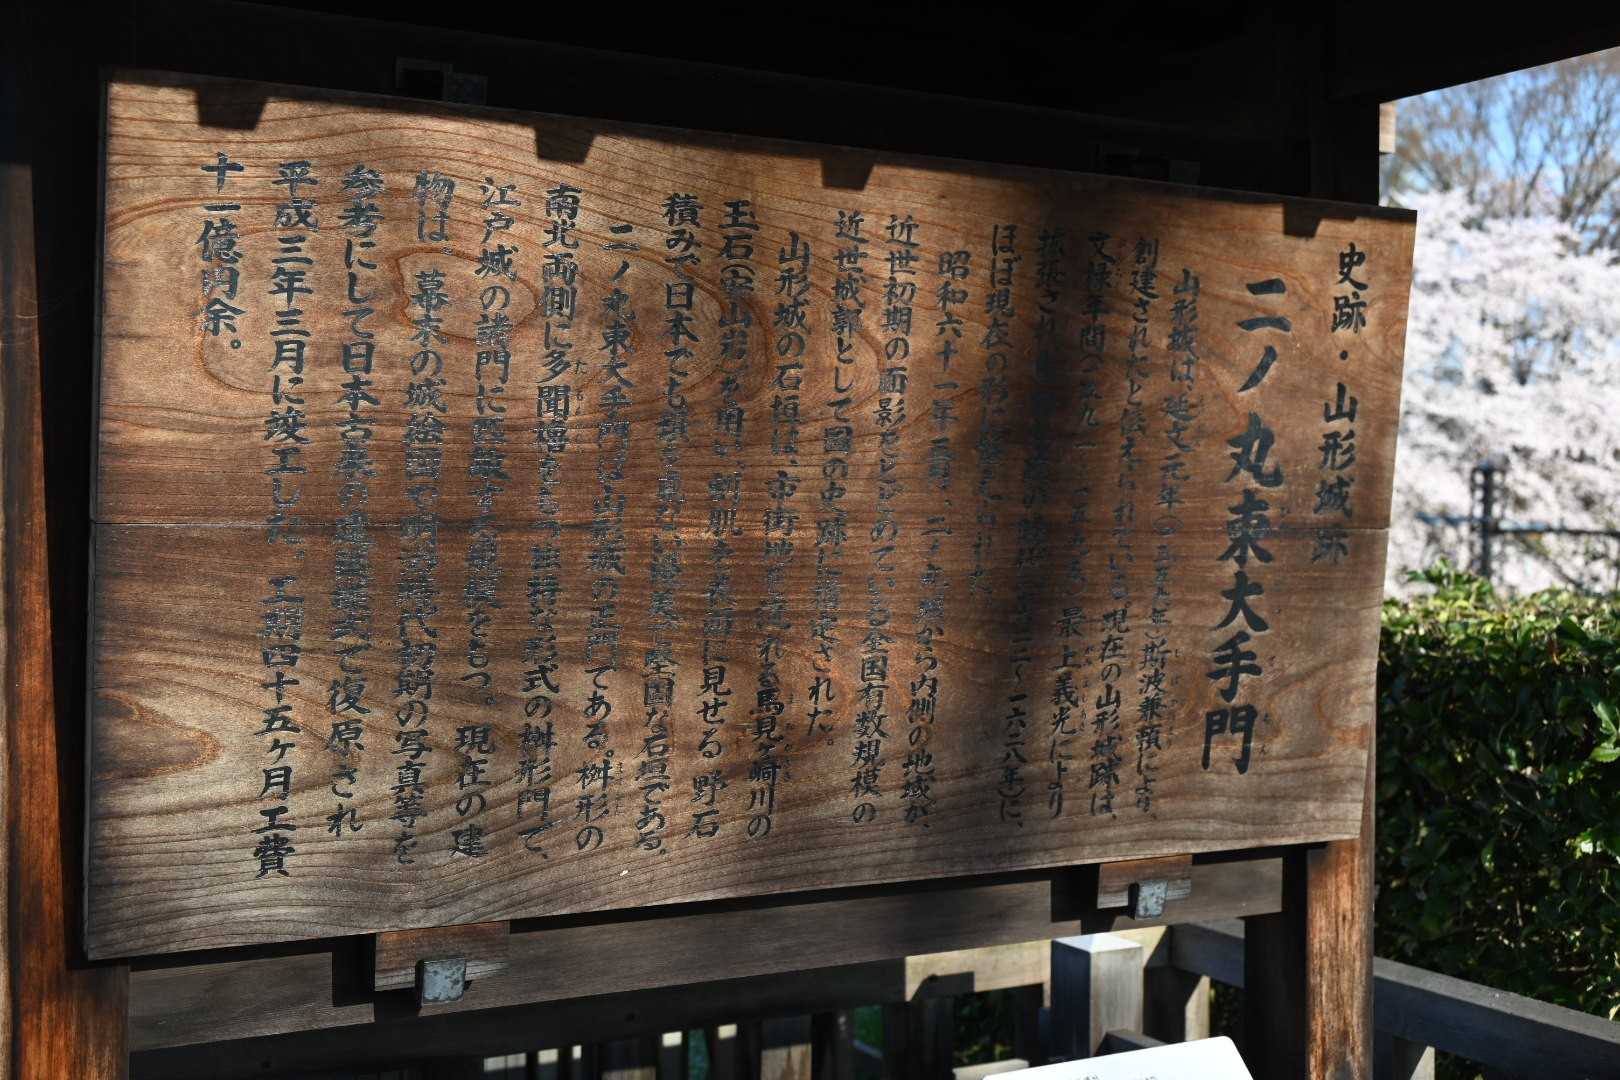 史跡・山形城跡
二ノ丸東大手門
山形城は、延文元年(一三五六年)斯波兼頼により、
創建されたと伝えられている。現在の山形城跡は、
文禄年間(一五九二〜一五九五)最上義光により
拡張され、
ほぼ現在の形に整えられた。
昭和六十一年五月、二ノ丸堀から内側の地域が、
近世初期の面影をとどめている全国有数規模の
近世城郭として国の史跡に指定された。
山形城の石垣は、市街地を流れる馬見ヶ崎川の
玉石(安山岩)を用い、割肌を表面に見せる野石
積みで日本でも類を見ない優美で堅固な石垣である。
二ノ丸東大手門は山形城の正門である。桝形の
南北両側に多聞櫓をもつ独特な形式の桝形門で、
江戸城の諸門に匹敵する規模をもつ。現在の建
物は。幕末の城絵図や明治時代初期の写真等を
参考にして日本古来の建築様式で復原され
平成三年三月に竣工した。工期四十五ヶ月工費
十一億円余。